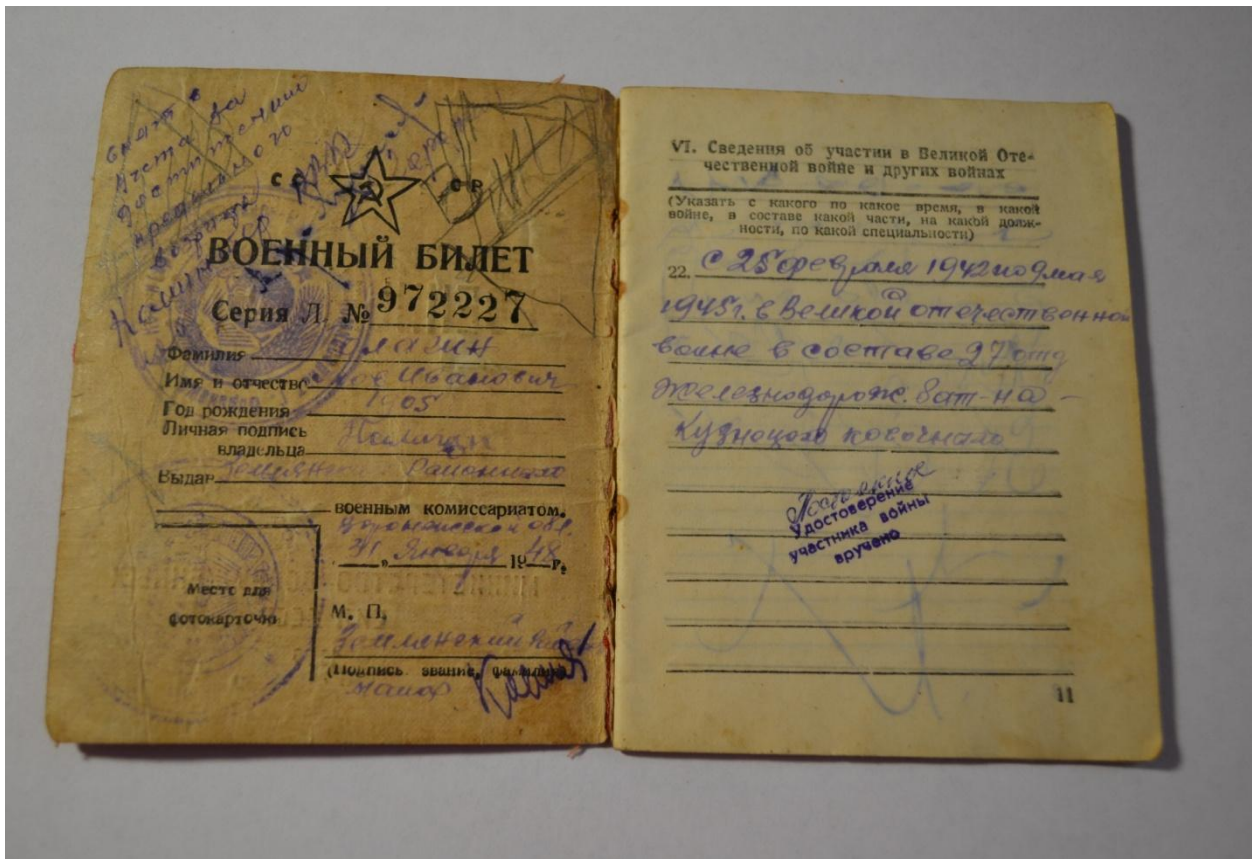 снят с
учета по
достижении
предельного
возраста
СССР
ВОЕННЫЙ БИЛЕТ
Серия Л. № 972227
Фамилия
Имя и отчество Иванович
Год рождения 1905
Личная подпись
владельца
Выдан Районным
военным комиссариатом.
Воронежской обл.
31 " Января 1948 г.
Место для
фотокарточки
М. П.
Землянский
(Подпись звание, фамилия)
VI. Сведения об участии в Великой Оте-
чественной войне и других войнах
(Указать с какого по какое время, в какой
войне, в составе какой части, на какой долж-
ности, по какой специальности)
22. С 25 февраля 1942 по 9 мая
1945г. в Великой отечественной
войне в составе 27 отд
железнодорож. бат-на -
Кузнецом ковочным
Удостоверение
участника войны
вручено
11